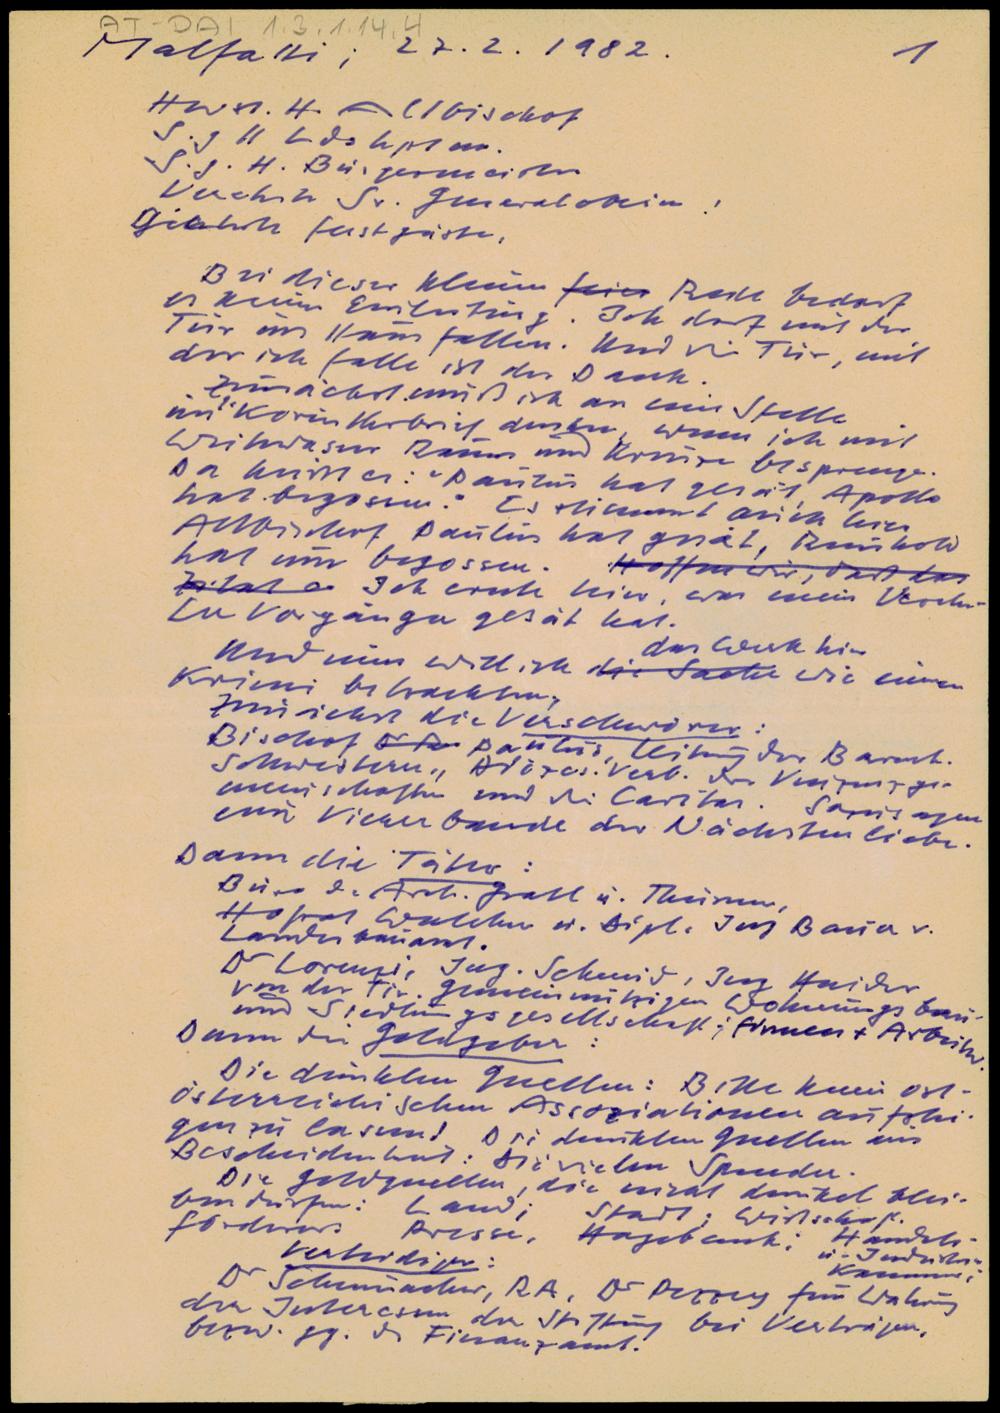 AT-DAI 1.3.1.14.4
Malfatti; 27.2.1982. 1
Hwst. H. Altbischof
S.g H Ldshptm.
S.g. H. Bürgermeister
Verehrte Sr. Generaloberin!
Geehrte Festgäste,
Bei dieser kleinen feier Rede bedarf
es keiner Einleitung. Ich darf mit der
Tür ins Haus fallen. Und die Tür, mit
der ich falle ist der Dank.
Zunächst muß ich an eine Stelle
im Korintherbrief denken, wenn ich mit
Weihwasser Räume und Kreuze besprenge.
Da heißt es: "Paulus hat gesät, Apollo
hat begossen." Es stimmt auch hier
Altbischof Paulus hat gesät, Reinhold
hat nur begossen. Hoffen wir, daß das
Zitat Ich ernte hier, was mein Verehr-
ter Vorgänger gesät hat.
das Werk hier
Und nun will ich die Sache wie einen
Krimi betrachten;
Zunächst die Verschwörer:
Bischof Paulus, Leitung der Barmh.
Schwestern, Diözes. Verb. der Vinzenzge-
meinschaften und die Caritas. Sozusagen
eine Viererbande der Nächstenliebe.
Dann die Täter:
Büro d. Arch. Gratl u. Thurner,
Hofrat Walcher u. Dipl. Ing Bauer v.
Landesbauamt.
Dr Lorenzi, Ing. Schmid, Ing Haider
von der Fir. Gemeinnützigen Wohnungsbau-
und Siedlungsgesellschaft; Firmen + Arbeiter.
Dann die Geldgeber:
Die dunklen Quellen: Bitte keine ost-
österreichischen Assoziationen aufstei-
gen zu lassen! Die dunklen Quellen aus
Bescheidenheit: Die vielen Spender.
Die Geldquellen, die nicht dunkel blei-
ben dürfen: Land; Stadt; Wirtschaf.
förderer: Presse, Hagebank; Handels-
u. Industrie-
Kammer;
Verteidiger:
Dr Schumacher, R.A, Dr Pezzey für Wahrung
der Interessen der Stiftung bei Verträgen,
bezw. gg. d. Finanzamt.